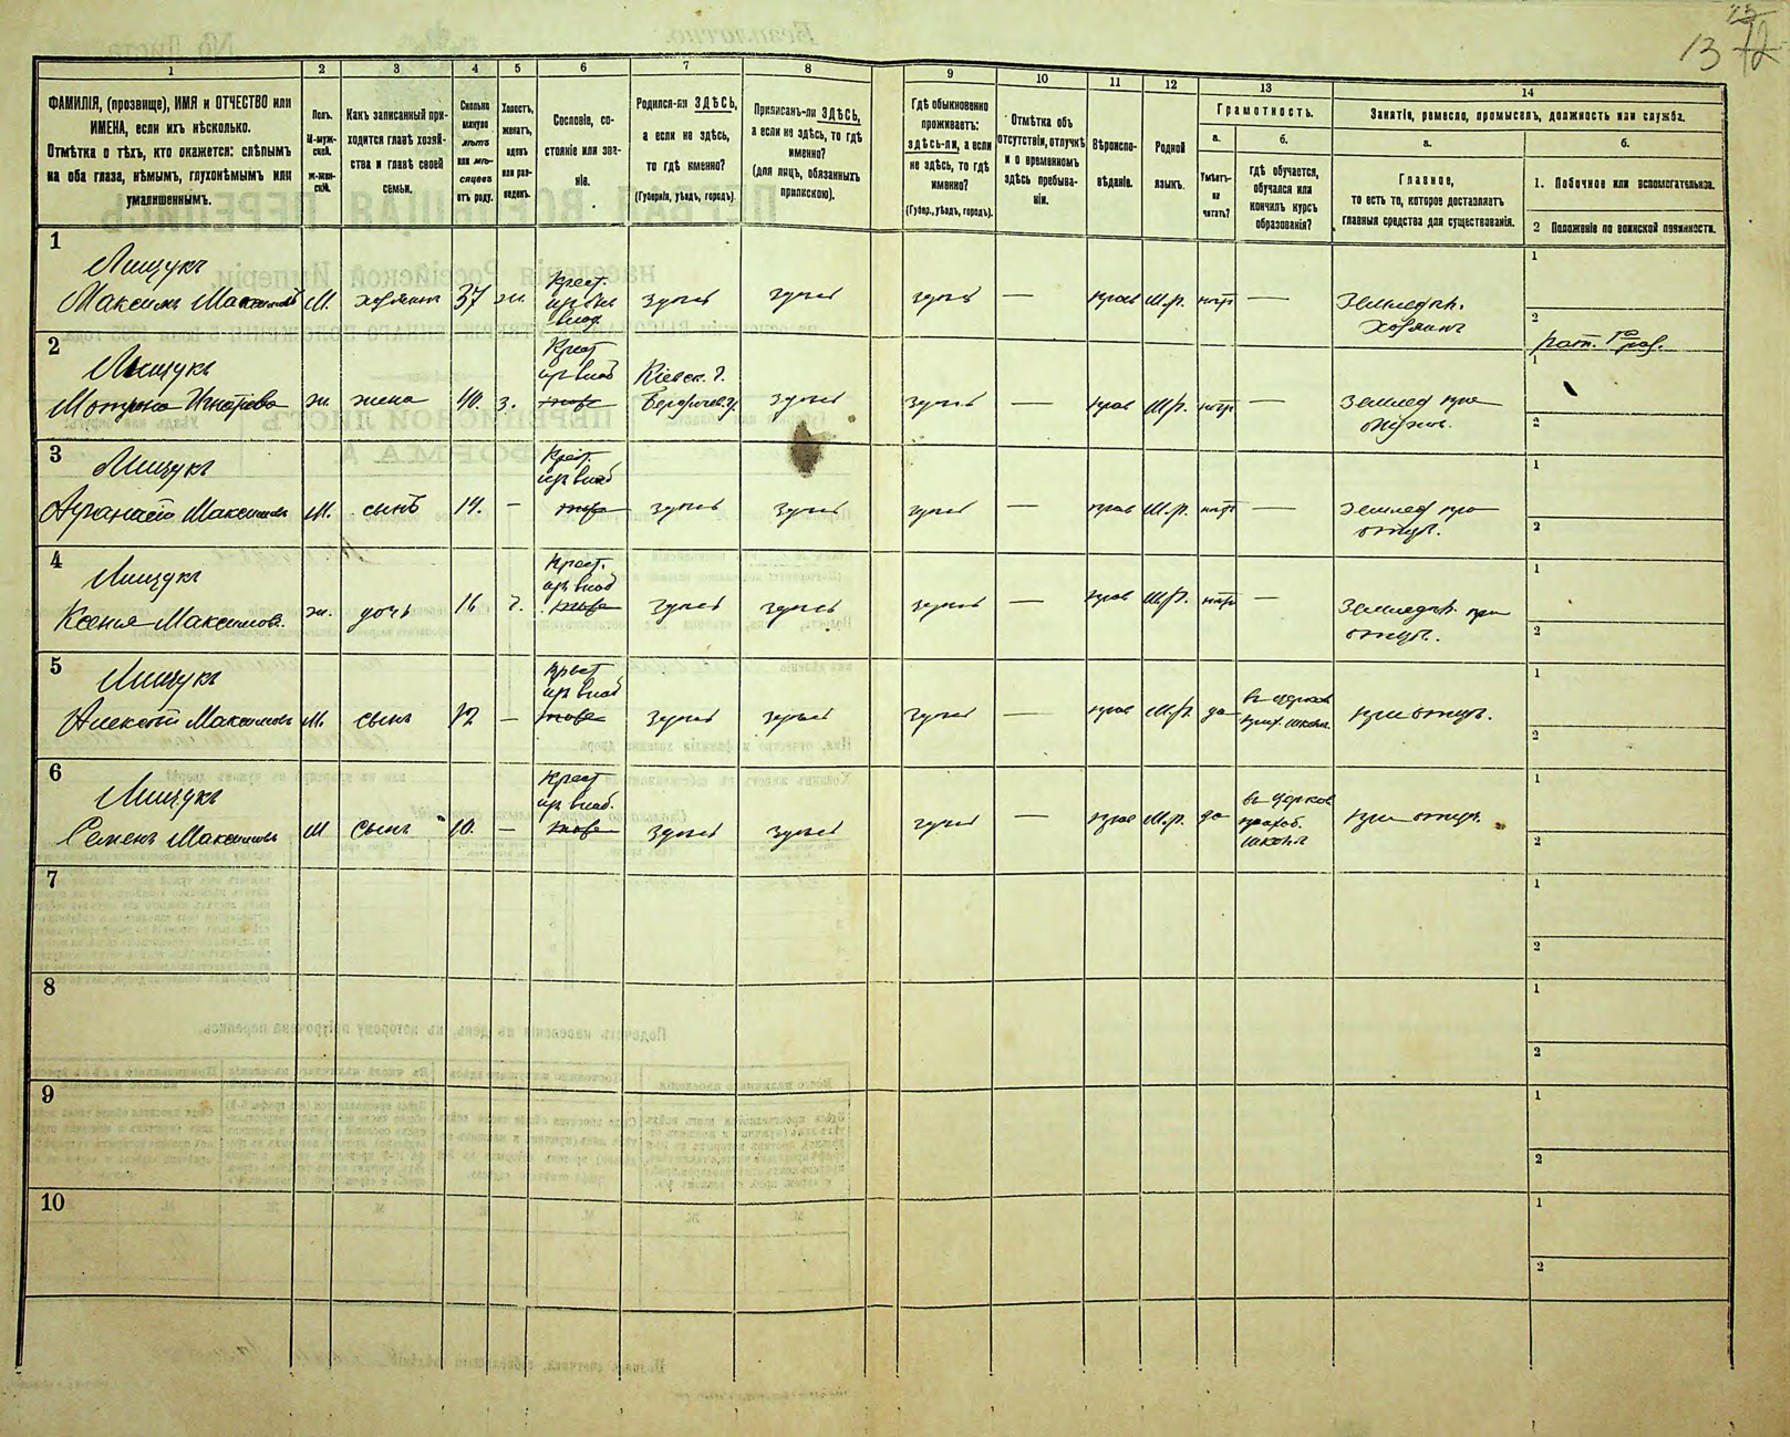 13 12
1 2 3 4 5 6 7 8 9 10 11 12 13 14
ФАМИЛІЯ, (прозвище), ИМЯ и ОТЧЕСТВО или
ИМЕНА, если ихъ нѣсколько.
Отмѣтка о тѣхъ, кто окажется: слѣпымъ
на оба глаза, нѣмымъ, глухонѣмымъ или
умалишеннымъ.
Полъ.
М-муж-
ской.
ж-жен-
скій.
Какъ записанный при-
ходится главѣ хозяй-
ства и главѣ своей
семьи.
Сколько
минуло
лѣтъ
или мѣ-
сяцевъ
отъ роду.
Холостъ,
женатъ,
вдовъ
или раз-
веденъ.
Сословіе, со-
стояніе или зва-
ніе.
Родился-ли ЗДѢСЬ,
а если не здѣсь,
то гдѣ именно?
(Губернія, уѣздъ, городъ).
Приписанъ-ли ЗДѢСЬ,
а если не здѣсь, то гдѣ
именно?
(для лицъ, обязанныхъ
припискою).
Гдѣ обыкновенно
проживаетъ:
ЗДѢСЬ-ли, а если
не здѣсь, то гдѣ
именно?
(Губер., уѣздъ, городъ).
Отмѣтка объ
отсутствіи, отлучкѣ
и о временномъ
здѣсь пребыва-
ніи.
Вѣроиспо-
вѣданіе.
Родной
языкъ.
Грамотность.
а.
Умѣетъ-
ли
читать?
б.
Гдѣ обучается,
обучался или
кончилъ курсъ
образованія?
Занятіе, ремесло, промыселъ, должность или служба.
а.
Главное,
то есть то, которое доставляетъ
главныя средства для существованія.
б.
1. Побочное или вспомогательное.
2 Положеніе по воинской повинности.
1
Лищукъ
Максимъ Максимовъ М. хозяинъ 37 ж. Крест. изъ влад. здѣсь здѣсь здѣсь — прав М.р. нѣтъ — Земледѣл. хозяинъ
1
2
2
Лищукъ
Мотрона Игнатова ж. жена 40. з. Крест изъ влад Кіевск. г. Бердичев. у. здѣсь здѣсь — прав М.р. нѣтъ — Землед при мужѣ.
1
2
3
Лищукъ
Афанасій Максимовъ М. сынъ 19. — Крест. изъ влад здѣсь здѣсь здѣсь — прав М.р. нѣтъ — Землед при отцѣ.
1
2
4
Лищукъ
Ксенья Максимова. ж. дочь 16 д. Крест. изъ влад здѣсь здѣсь здѣсь — прав М.р. нѣтъ — Земледѣл. при отцѣ.
1
2
5
Лищукъ
Алексѣй Максимовъ М. сынъ 12 — Крест изъ влад здѣсь здѣсь здѣсь — прав М.р. да въ церков прих. школѣ при отцѣ.
1
2
6
Лищукъ
Семенъ Максимовъ М сынъ 10. — Крест изъ влад. здѣсь здѣсь здѣсь — прав М.р. да въ церков приход. школѣ при отцѣ.
1
2
7
1
2
8
1
2
9
1
2
10
1
2